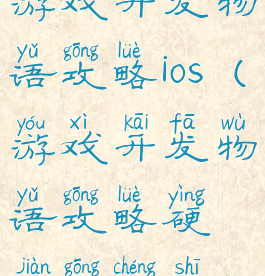 游戏开发物
yǔ gōng lüè
语攻略ios（
yóu xì kāi fā wù
游戏开发物
yǔ gōng lüè yìng
语攻略硬
jiàn gōng chéng shī